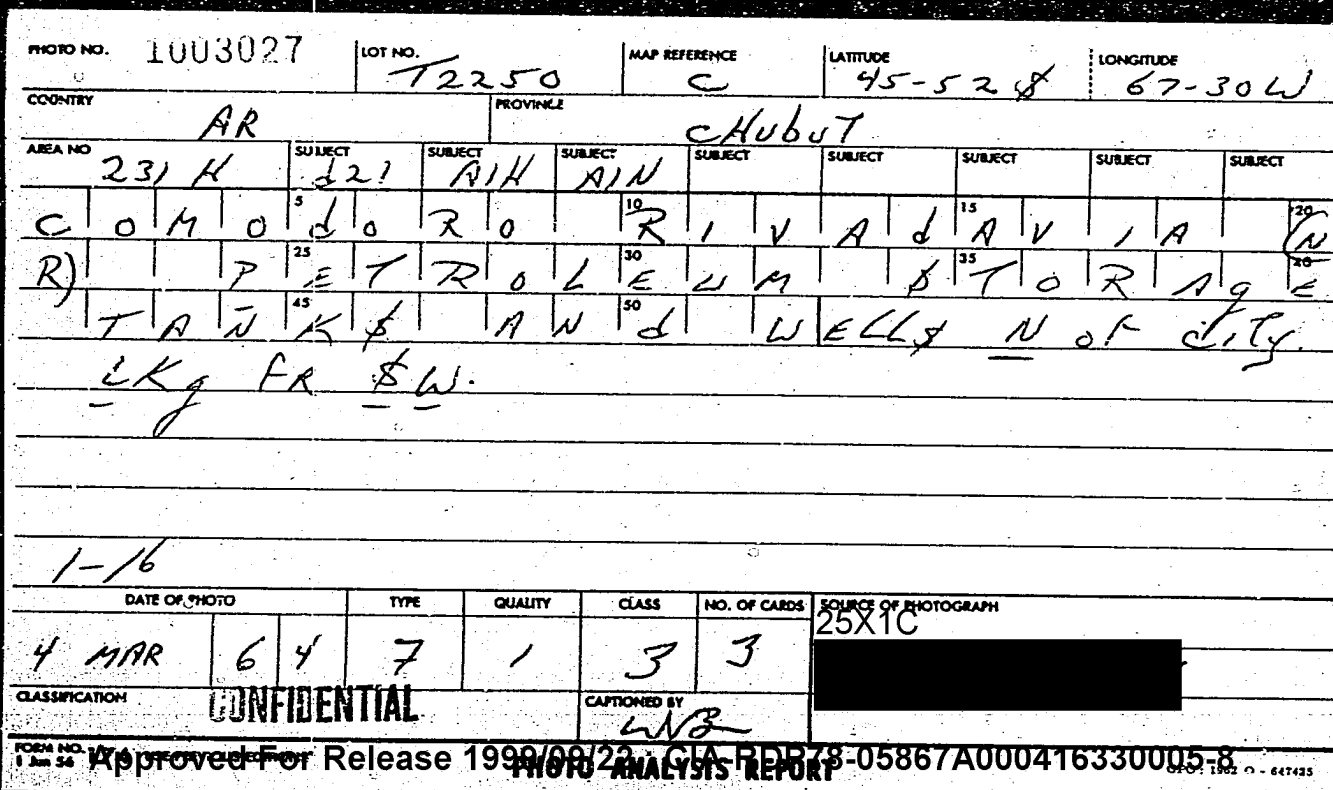 PHOTO NO. 1003027 LOT NO. T2250 MAP REFERENCE C LATITUDE 45-52 S LONGITUDE 67-30 W
COUNTRY AR PROVINCE CHubuT
AREA NO 231 H SUBJECT d21 SUBJECT A1H SUBJECT A1N SUBJECT SUBJECT SUBJECT SUBJECT SUBJECT
COMOdoRo 5 10 RIVAdAVIA 15 20 (N
R) PETROLEUM STORAgE 25 30 35 40
TANKS ANd WELLS N of ciTy. 45 50
LKg FR SW.
1-16
DATE OF PHOTO TYPE QUALITY CLASS NO. OF CARDS SOURCE OF PHOTOGRAPH
25X1C
4 MAR 6 4 7 1 3 3
CLASSIFICATION CONFIDENTIAL CAPTIONED BY
FORM NO.
1 Jun 56
Approved For Release 1999/09/22 : CIA-RDP78-05867A000416330005-8
PHOTO ANALYSIS REPORT
GPO : 1962 O - 647425